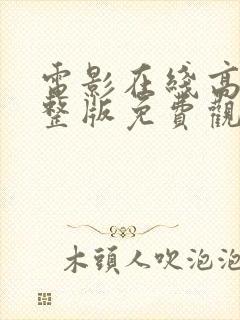 電影在綫高
整版免費觀
木頭人吹泡泡